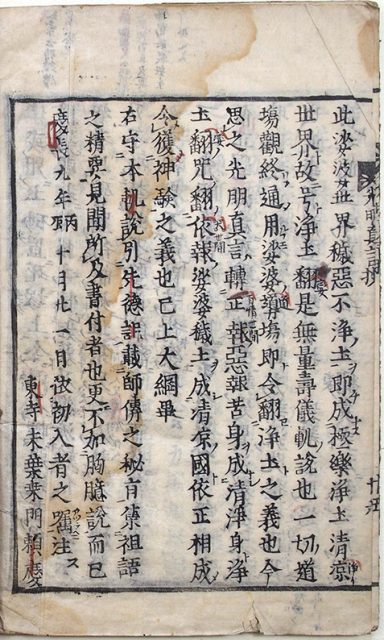 此娑婆世界穢惡不淨土即成極樂淨土清凉
世界故号淨土翻是無量壽儀軌說也一切道
塲觀終通用娑婆塲即令翻淨土之義也今
思之光明真言轉正報惡報苦身成清淨身淨
土翻咒翻依報娑婆穢土成清凉國依正相成
令獲神驗之義也已上大綱畢
右守本軌說引先德訓載師傳之秘肓集祖語
之精要見聞所及書付者也更不加胸臆說而已
慶長九年丙十月廿一日依初入者之囑注ス
東寺末葉桒門頼慶